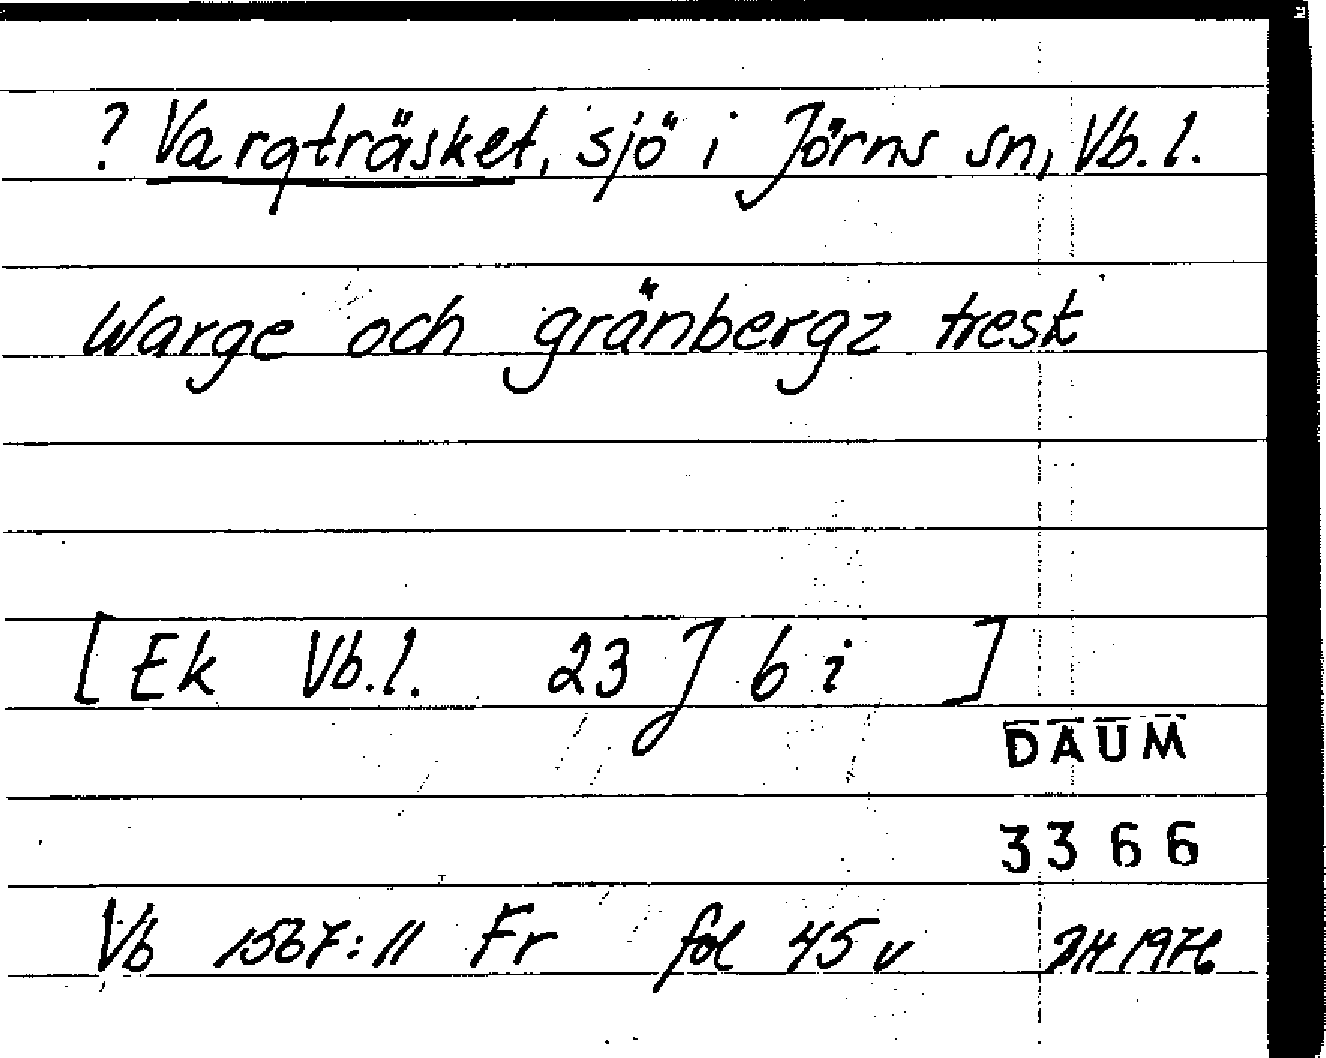 ? Vargträsket, sjö i Jörns sn, Vb.l.
Warge och gränbergz tresk
[Ek Vb.l. 23 J 6 i ]
DAUM
3366
Vb 1567:11 Fr fol 45 v 1976